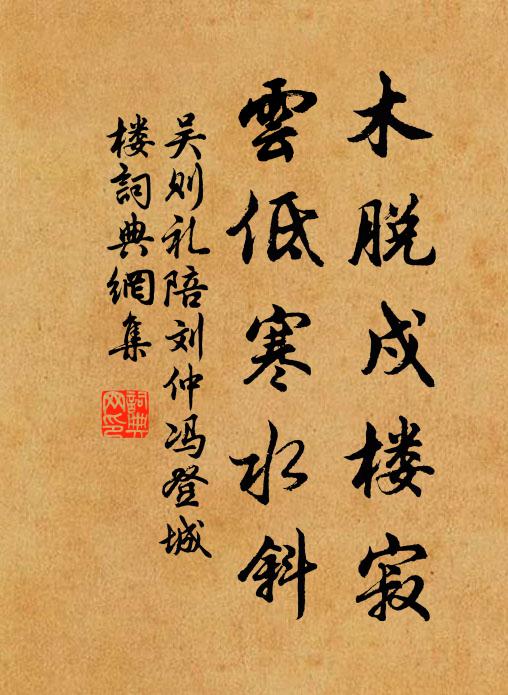 木脱戍楼寂
雲低寒水斜
吴则礼陪刘仲冯登城
楼詞典網集
詞典网印